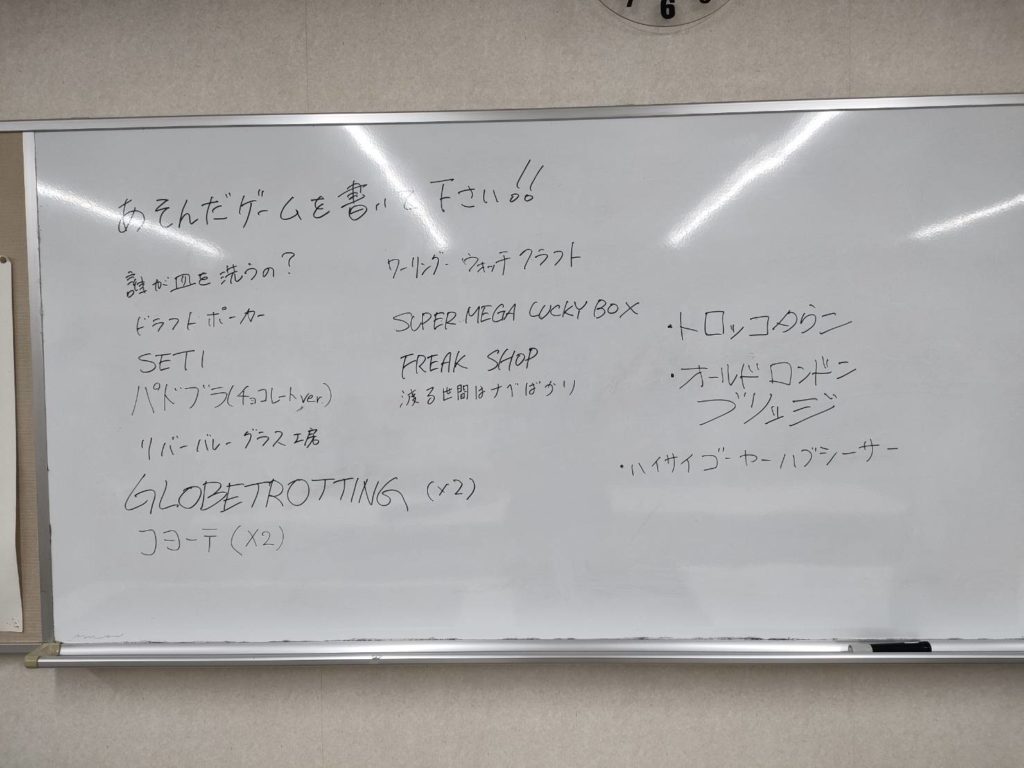 6
あそんだゲームを書いて下さい!!
誰が皿を洗うの?
ドラフトポーカー
SETI
パドブラ(チョコレートver)
リバーバレーグラス工房
GLOBETROTTING (×2)
コヨーテ(×2)
ワーリング・ウォッチクラフト
SUPER MEGA LUCKY BOX
FREAK SHOP
渡る世間はナベばかり
・トロッコタウン
・オールドロンドン
ブリッジ
・ハイサイゴーヤーハブシーサー